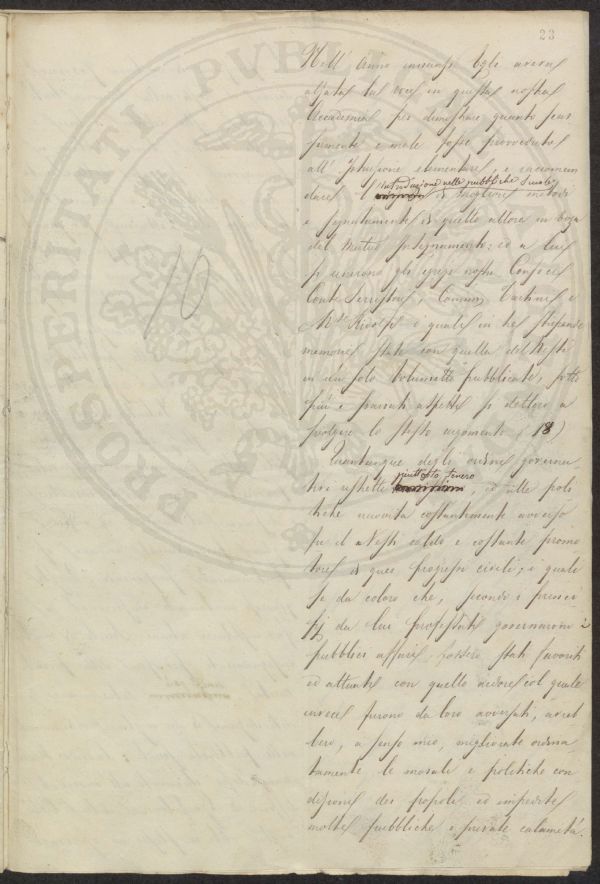 23
PROSPERITATI PUBLICAE
10
Nell' Anno innanzi Egli aveva
alzata la voce in questa nostra
Accademia per dimostrare quanto scar
samente e male fosse provveduto
all' Istruzione elementare, e raccoman
dare l' introduzione nelle pubbliche Scuole
di migliori metodi
e segnatamente di quello allora in voga
del Mutuo Insegnamento: ed a lui
si unirono gli egregi nostri Consocj
Conte Serristori, Tartini e
M.se Ridolfi i quali in tre
memorie state con quella del Nesti
in un solo Volumetto pubblicate, sotto
più e svariati aspetti si dettero a
svolgere lo stesso argomento (18)
Quantunque degli ordini governa
tivi piuttosto tenero, ed alle poli
tiche novità costantemente avverso
fu il Nesti caldo e costante promo
tore di quei progressi civili; i quali
se da coloro che, secondo i princi
pj da lui professati governarono i
pubblici affari fossero stati favoriti
ed attuati con quello ardore col quale
invece furono da loro avversati, avreb
bero, a senso mio, migliorate ordina
tamente le morali e politiche con
dizioni dei popoli ed impedite
molte pubbliche e private calamità.